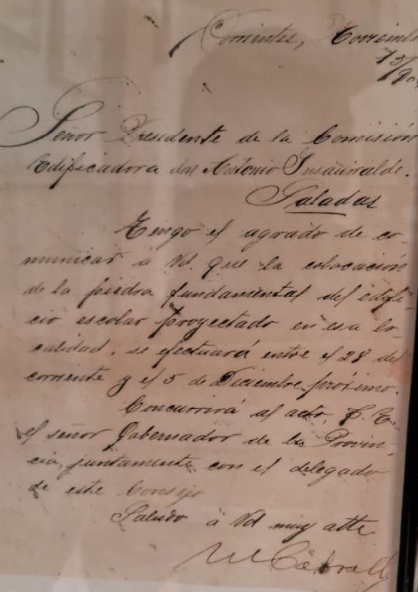 Corrientes, Noviembre
15/90
Señor Presidente de la Comisión
Edificadora don Antonio Insaurralde.
Saladas
Tengo el agrado de co-
municar á Vd. que la colocación
de la piedra fundamental del edifi-
cio escolar proyectado en esa lo-
calidad, se efectuará entre el 28 del
corriente y el 5 de Diciembre próximo.
Concurrirá al acto, S. E.
el señor Gobernador de la Provin-
cia, juntamente con el delegado
de este Consejo
Saludo á Vd muy atte
M Cabral